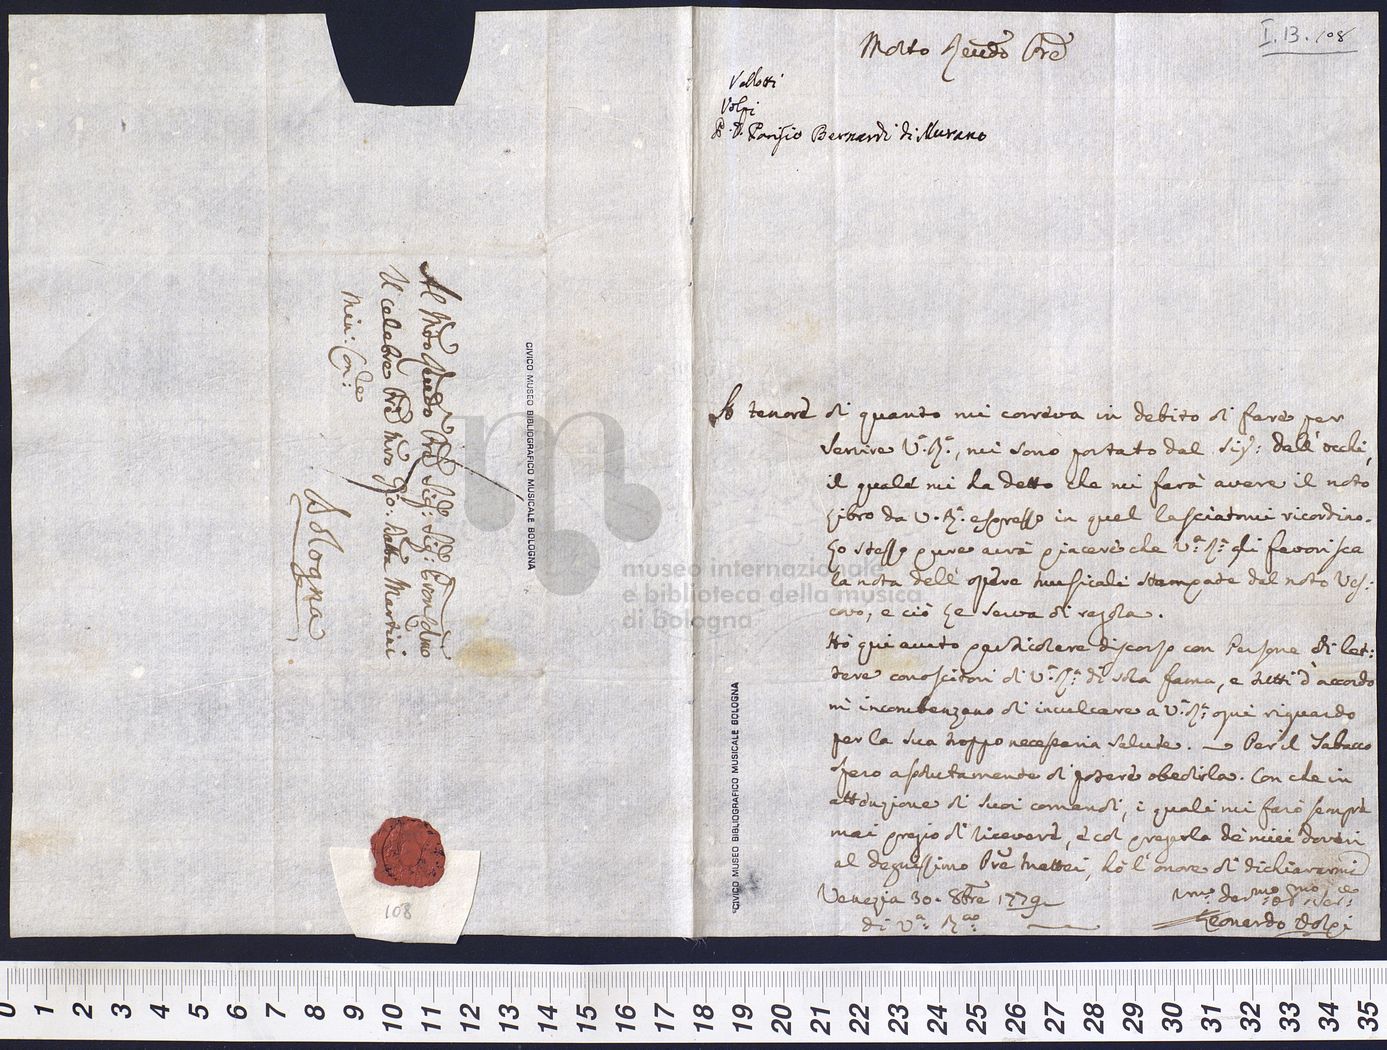 I.B.108
Molto Revdo Pre
Vallotti
Volpi
P. D. Parisio Bernardi di Murano
A tenore di quanto mi correva in debito di fare per
servire V.a R.a, mi sono portato dal Sig: dall'occhi,
il quale mi ha detto che mi farà avere il noto
Libro da V.a R.a espresso in quel lasciatomi ricordino.
Lo stesso pure avrà piacere che V.a R.a gli favorisca
la nota dell'opere musicali stampate dal noto Ves:
covo, e ciò Le serva di regola.
Hò qui avuto particolare discorso con Persone di let:
tere conoscitori di V.a R.a di sola fama, e tutti d'accordo
m'incombenzano di inculcare a V.a R.a ogni riguardo
per la sua troppo necessaria salute. — Per il Tabacco
spero assolutamente di poterla obedirla. Con che in
attenzione di suoi comandi, i quali mi farò sempre
mai pregio di ricevere, e col pregarla de miei doveri
al degnissimo Pre Mattei, hò l'onore di dichiararmi
Venezia 30. 8bre 1779
di V.a R.a
Leonardo Volpi
Al Mto Revdo Pre Sig: Sig:
Il celebre Pre Mro Gio. Batta Martini
Min: Con:
Bologna
108
CIVICO MUSEO BIBLIOGRAFICO MUSICALE BOLOGNA
CIVICO MUSEO BIBLIOGRAFICO MUSICALE BOLOGNA
museo internazionale
e biblioteca della musica
di bologna
0 1 2 3 4 5 6 7 8 9 10 11 12 13 14 15 16 17 18 19 20 21 22 23 24 25 26 27 28 29 30 31 32 33 34 35